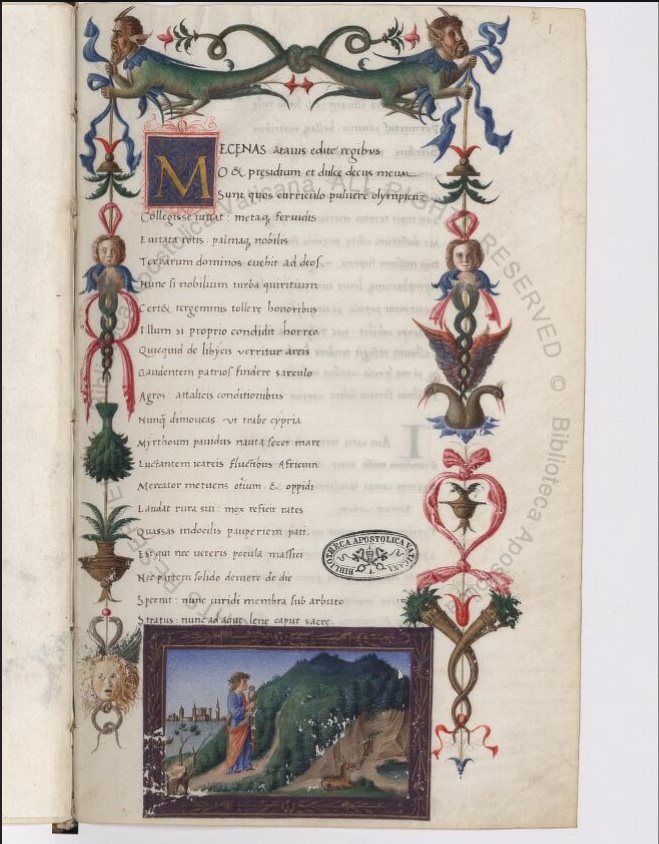 1
MECENAS atauis edite regibus
O & pręsidium et dulce decus meum
Sunt quos curriculo puluere olympicum
Collegisse iuuat : metaq; feruidis
Euitata rotis palmaq; nobilis
Terrarum dominos euehit ad deos.
Hunc si nobilium turba quiritium
Cert& tergeminis tollere honoribus
Illum si proprio condidit horreo
Quicquid de libycis uerritur areis
Gaudentem patrios findere sarculo
Agros : attalicis conditionibus
Nunq̃ dimoueas. Vt trabe cypria
Myrthoum pauidus nauta secet mare
Luctantem icareis fluctibus Africum
Mercator metuens otium & oppidi
Laudat rura sui : mox reficit rates
Quassas indocilis pauperiem pati.
Est qui nec ueteris pocula massici
Nec partem solido demere de die
Spernit : nunc uiridi membra sub arbuto
Stratus : nunc ad aquę lene caput sacrę
BIBLIOTHECA APOSTOLICA VATICANA
Apostolica Vaticana ALL RIGHTS RESERVED © Biblioteca Apos